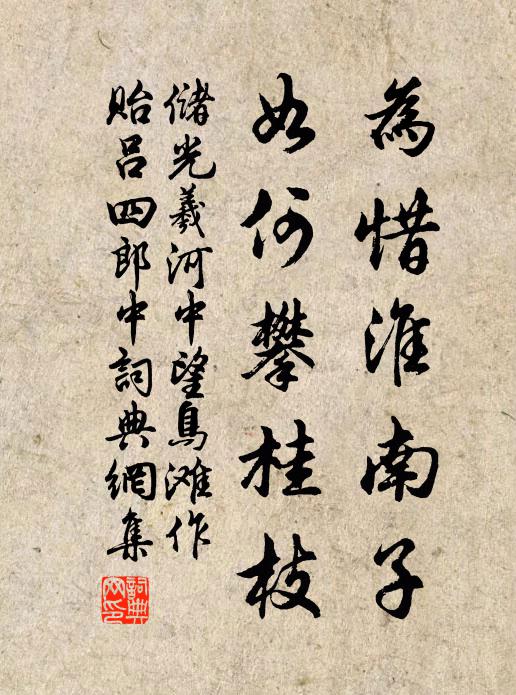 為惜淮南子
如何攀桂枝
儲光羲河中望鳥滩作
貽呂四郎中詞典網集
詞典
网印